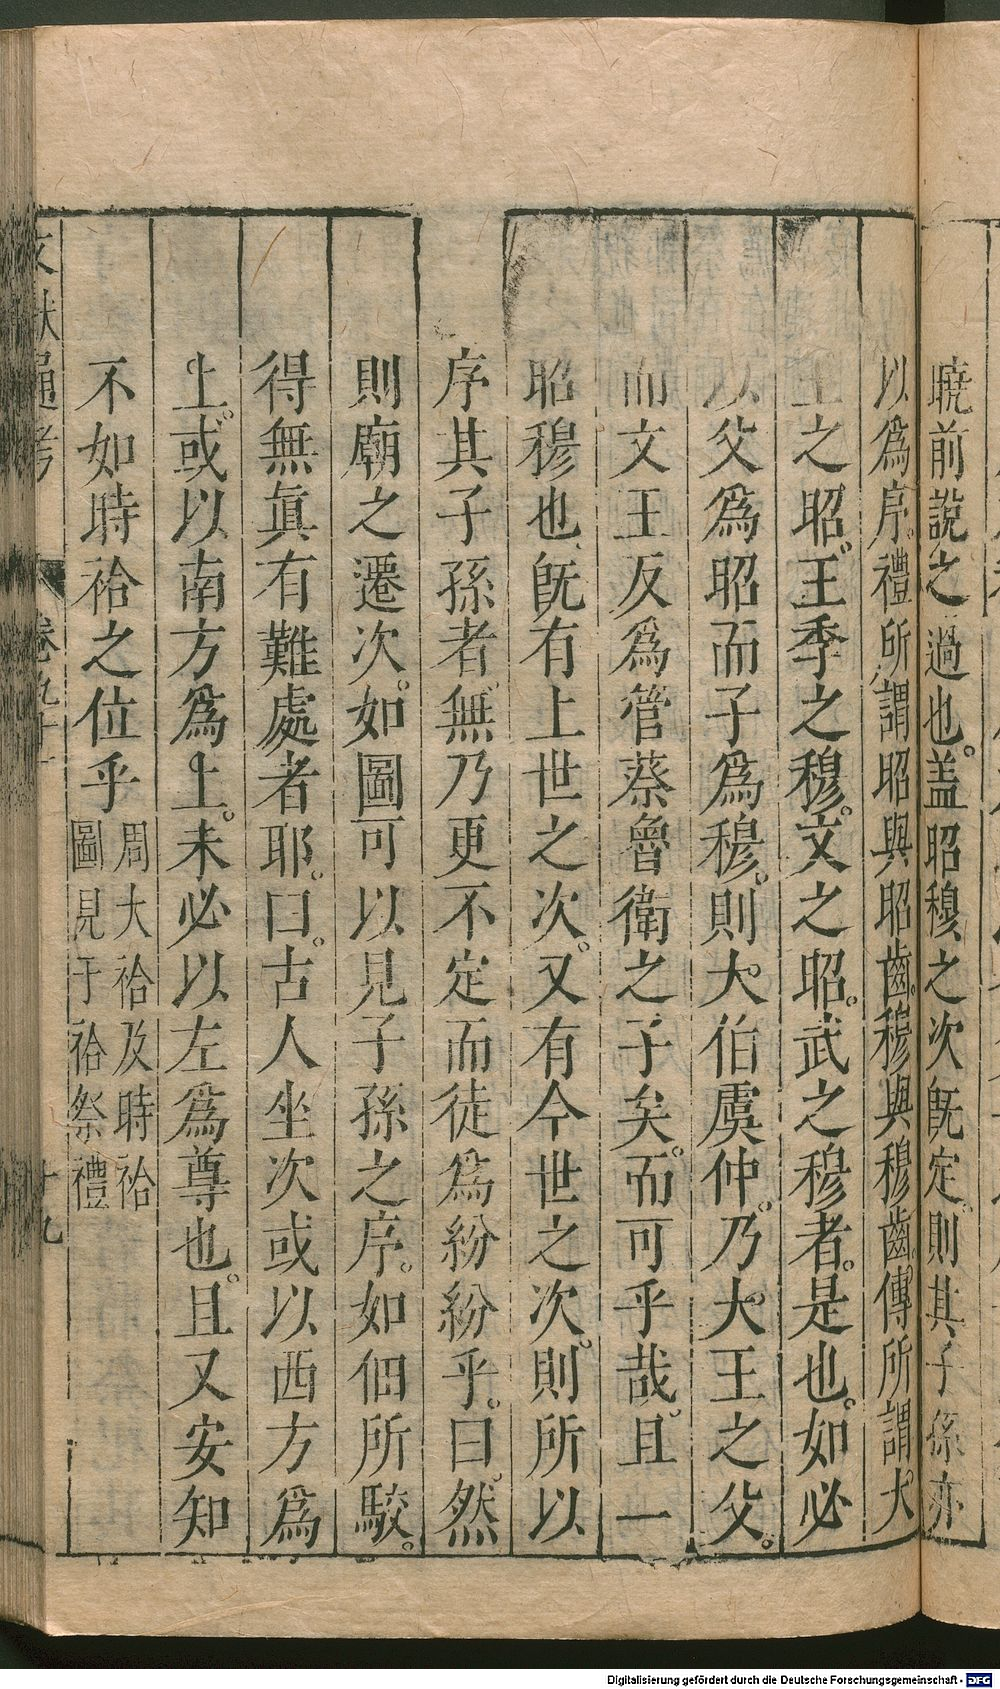 曉前說之過也。盖昭穆之次旣定。則其子孫亦
以爲序。禮所謂昭與昭齒。穆與穆齒。傳所謂大
王之昭。王季之穆。文之昭。武之穆者。是也。如必
以父爲昭而子爲穆。則大伯虞仲。乃大王之父。
而文王反爲管蔡魯衛之子矣。而可乎哉。且一
昭穆也旣有上世之次。又有今世之次。則所以
序其子孫者。無乃更不定而徒爲紛紛乎。曰。然
則廟之遷次。如圖可以見子孫之序。如佃所駮。
得無眞有難處者耶。曰。古人坐次或以西方爲
上。或以南方爲上。未必以左爲尊也。且又安知
不如時祫之位乎周大祫及時祫
圖見于祫祭禮
文獻通考 卷九十一 十九
Digitalisierung gefördert durch die Deutsche Forschungsgemeinschaft - DFG